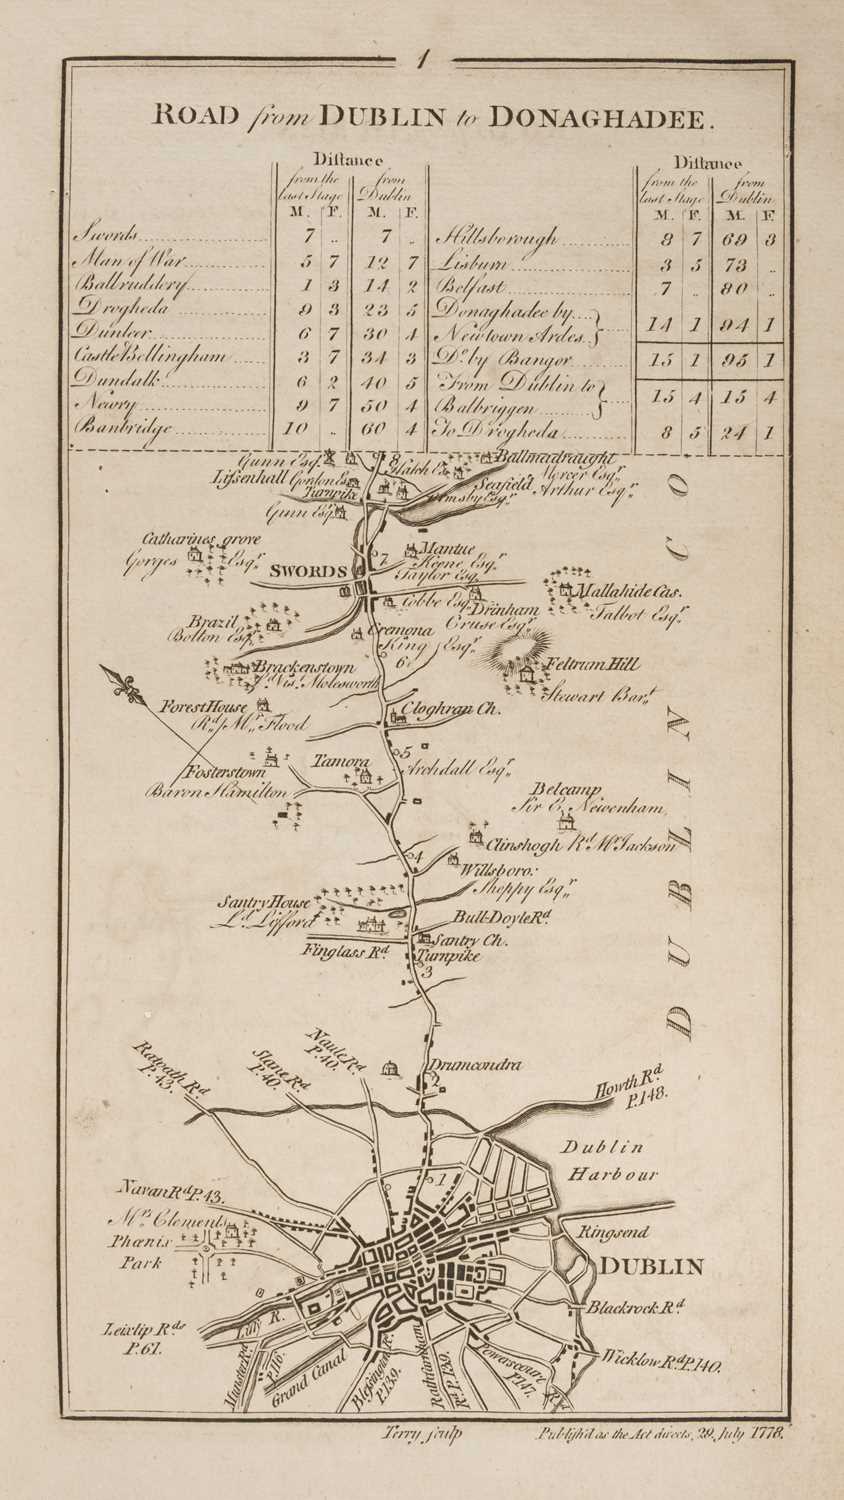 1
ROAD from DUBLIN to DONAGHADEE.
Distance
from the last Stage from Dublin
M. F. M. F.
Swords 7 .. 7 ..
Man of War 5 7 12 7
Ballruddery 1 3 14 2
Drogheda 9 3 23 5
Dunleer 6 7 30 4
Castle Bellingham 3 7 34 3
Dundalk 6 2 40 5
Newry 9 7 50 4
Banbridge 10 .. 60 4
Distance
from the last Stage from Dublin
M. F. M. F.
Hillsborough 8 7 69 3
Lisburn 3 5 73 ..
Belfast 7 .. 80 ..
Donaghadee by
Newtown Ardes. 14 1 94 1
Do. by Bangor 15 1 95 1
From Dublin to
Balbriggen 15 4 15 4
To Drogheda 8 5 24 1
Gunn Esq.
9
8
Hatch Es.
Ballmadraught
Mercer Esqr.
Lissenhall Gordon Es.
Turnpike
Seafield
Arthur Esqr.
Ormsby Esqr.
Gunn Esq.
Catharines grove
Gorges Esqr.
7
Mantue
Keene Esqr.
Taylor Esq.
SWORDS
Mallahide Cas.
Talbot Esqr.
Cobbe Esq.
Drinham
Cruse Esqr.
Brazil
Bolton Esq.
Cremona
King Esqr.
6
Feltrum Hill
Stewart Bart.
Brackenstown
Ld. Vist. Molesworth
Forest House
Rd. Mr. Flood
Cloghran Ch.
5
Fosterstown
Baron Hamilton
Tamora
Archdall Esqr.
Belcamp
Sir E. Newenham
Clinshogh Rd. Mr. Jackson
4
Willsboro:
Shoppy Esqr.
Santry House
Ld. Lifford
Bull-Doyle Rd.
Santry Ch.
Finglass Rd.
Turnpike
3
DUBLIN CO
Ratoath Rd
P.43.
Slane Rd
P.40.
Naule Rd
P.40.
Drumcondra
2
Howth Rd
P.148.
Dublin
Harbour
1
Navan Rd P.43.
Mrs. Clements
Phœnix
Park
Ringsend
DUBLIN
Leixlip Rds
P.61.
Liffy R.
Blackrock Rd.
Wicklow Rd. P.140.
Munster Rd
P.116.
Grand Canal
Blessington R.
P.139.
Rathfarnham
Rd. P.139.
Powerscourt Rd
P.147.
Terry sculp
Publish'd as the Act directs, 29, July 1778.